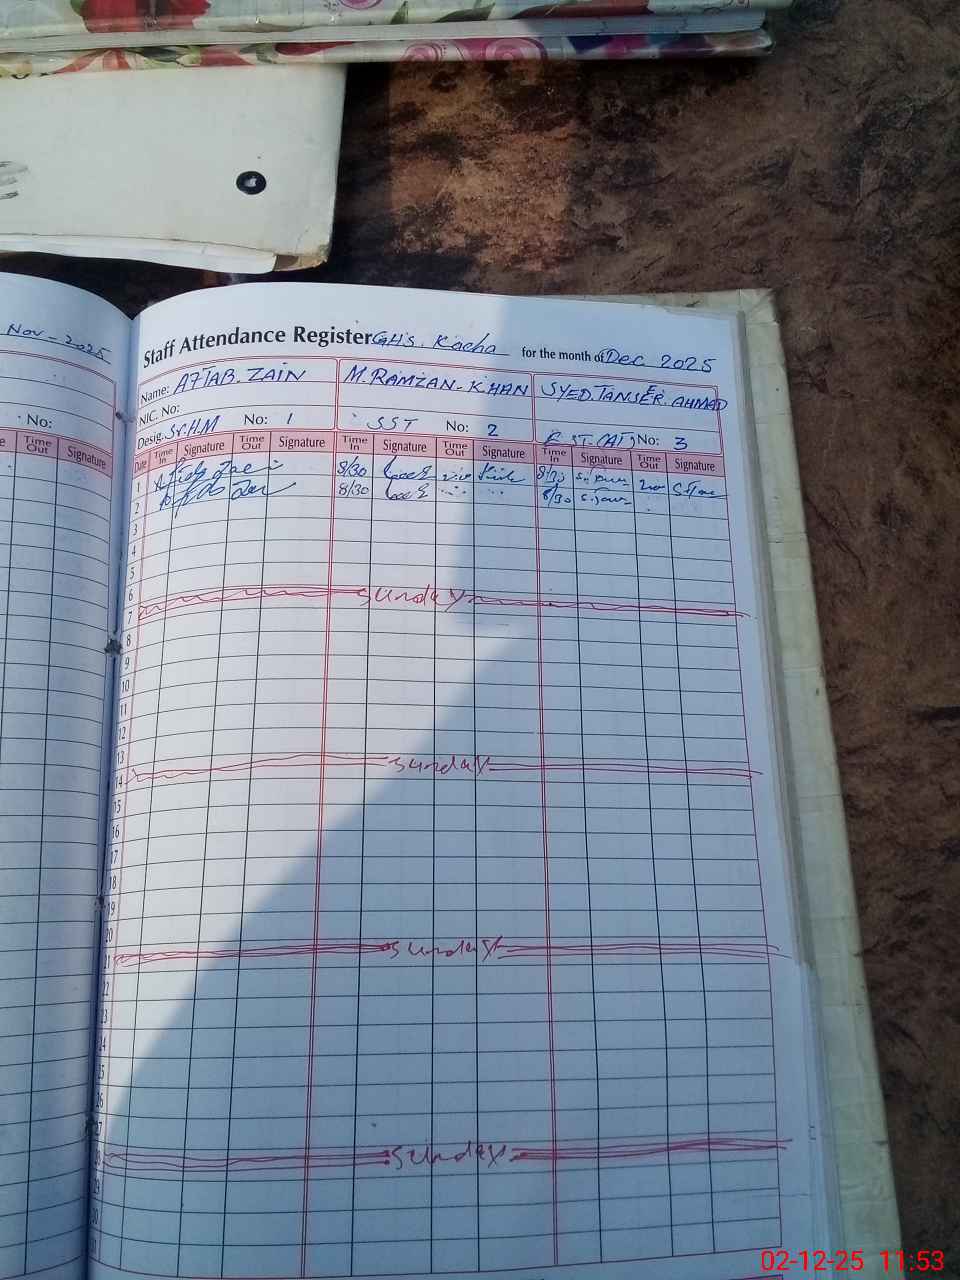 Nov-2025
Staff Attendance Register GHS. Kacha for the month of Dec 2025
Name: AFTAB. ZAIN M. RAMZAN-KHAN SYED. TANSEER. AHMAD
NIC. No:
No: Desig. Sr.HM No: 1 SST No: 2 No: 3
Time Out Signature Date Time In Signature Time Out Signature Time In Signature Time Out Signature Time In Signature Time Out Signature
1 8/30 8/30
2 8/30 8/30
3
4
5
6 sunday
7
8
9
10
11
12
13 sunday
14
15
16
17
18
19
20 sunday
21
22
23
24
25
26
27 sunday
28
29
30
31
02-12-25 11:53